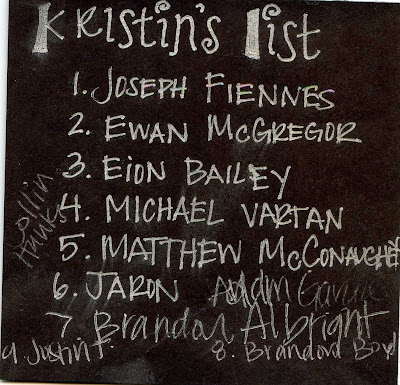 Kristin's list
1. JOSEPH FIENNES
2. EWAN McGREGOR
3. EION BAILEY
4. MICHAEL VARTAN
5. MATTHEW McCONAUGHE
6. JARON
7. Brandon Albright
8. Brandon Boyd
9. Justin T.
Collin Hanks